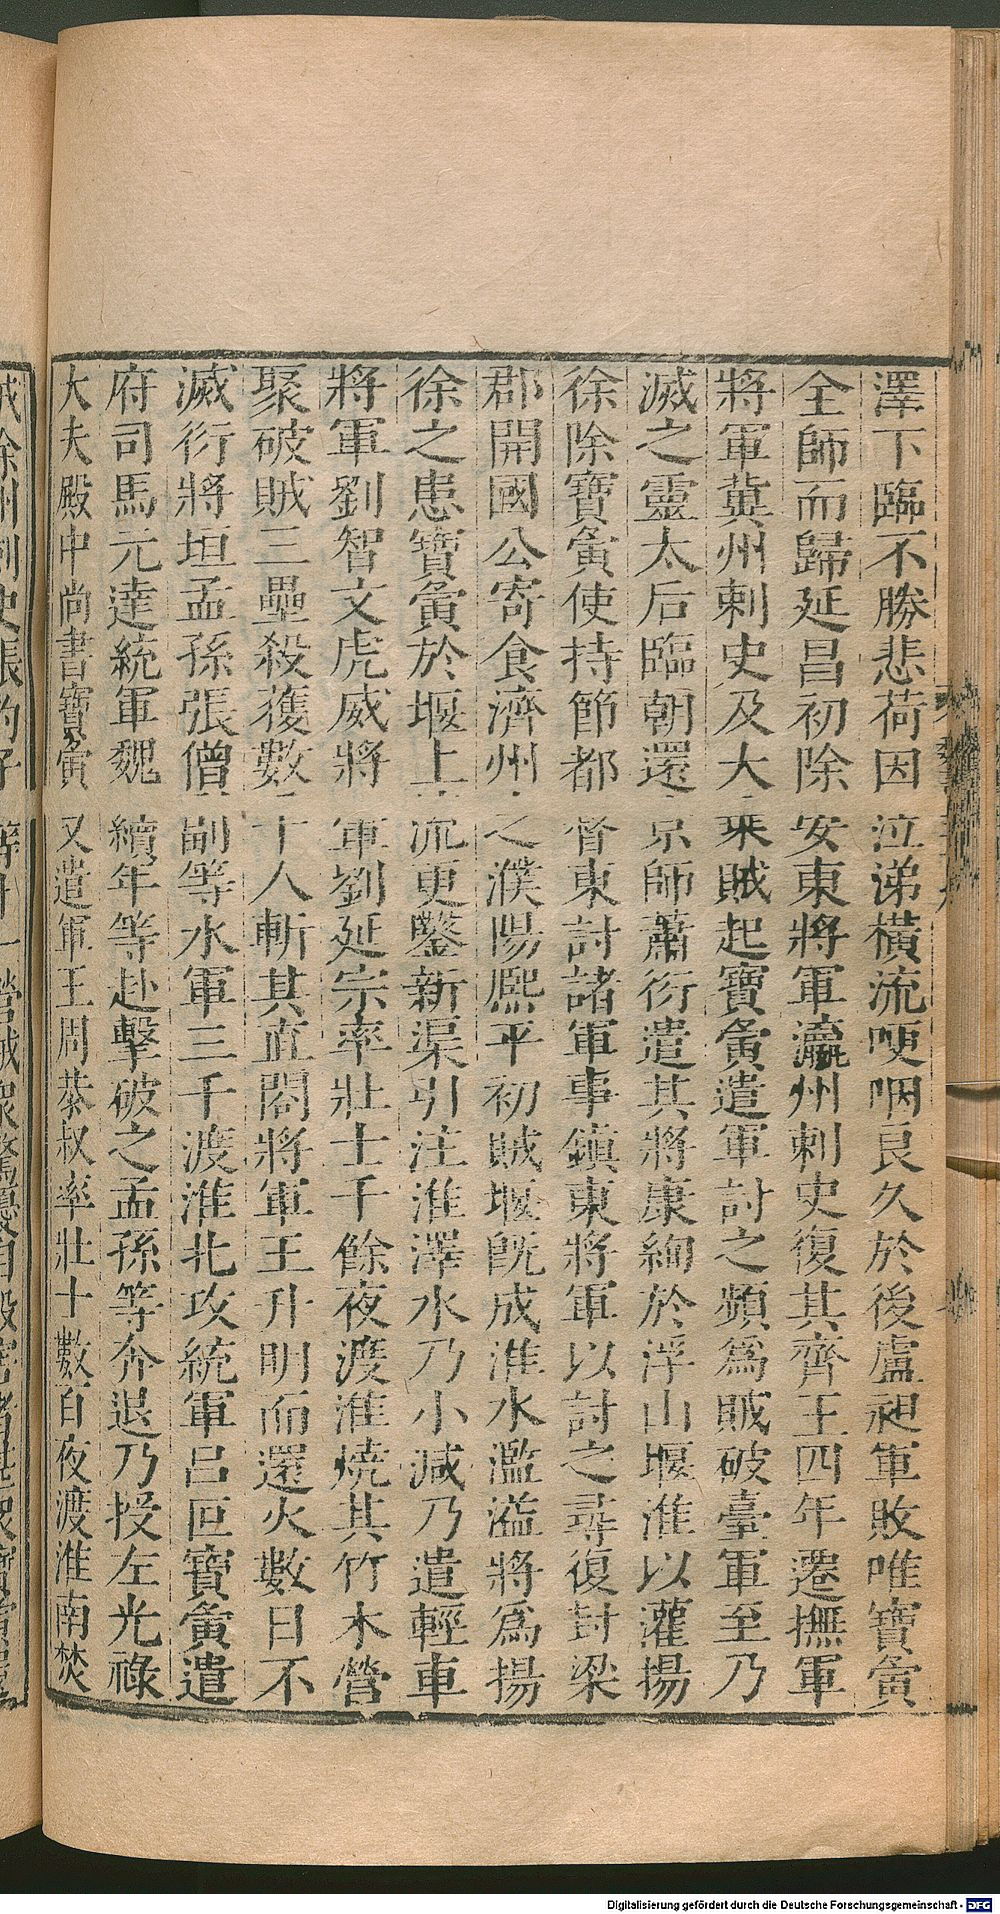 澤下臨不勝悲荷因泣涕橫流哽咽良久於後盧昶軍敗唯寶夤
全師而歸延昌初除安東將軍瀛州刺史復其齊王四年遷撫軍
將軍冀州刺史及大乗賊起寶夤遣軍討之頻爲賊破臺軍至乃
滅之靈太后臨朝還京師蕭衍遣其將康絢於浮山堰淮以灌揚
徐除寶夤使持節都督東討諸軍事鎮東將軍以討之尋復封梁
郡開國公寄食濟州之濮陽熈平初賊堰旣成淮水濫溢將爲揚
徐之患寶夤於堰上流更鑿新渠引注淮澤水乃小減乃遣輕車
將軍劉智文虎威將軍劉延宗率壯士千餘夜渡淮燒其竹木營
聚破賊三壘殺獲數千人斬其直閤將軍王升明而還火數日不
滅衍將垣孟孫張僧副等水軍三千渡淮北攻統軍呂叵寶夤遣
府司馬元達統軍魏續年等赴擊破之孟孫等奔退乃授左光祿
大夫殿中尚書寶夤又遣軍王周恭叔率壯士數百夜渡淮南焚
Digitalisierung gefördert durch die Deutsche Forschungsgemeinschaft - DFG